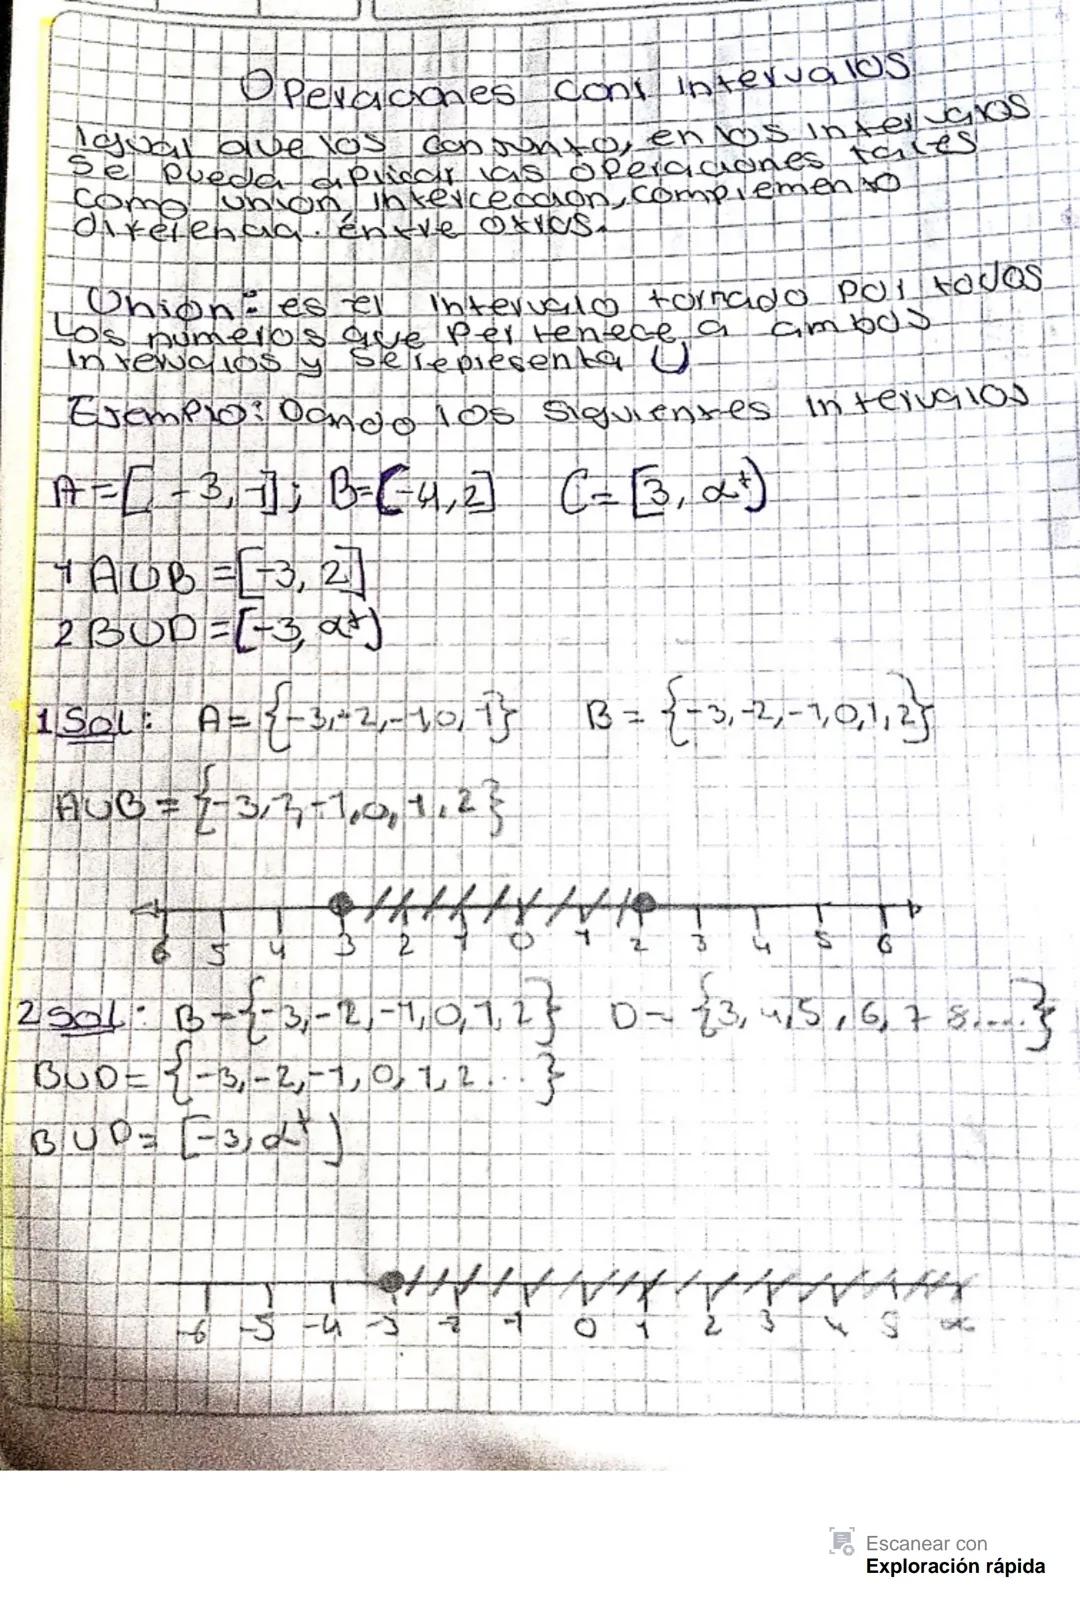 Operaciones con intervalos
Igual que los conjunto, en los intervalos
se pueda aplicar las operaciones tales
como unión, intercección, complemento
diferencia. entre otros.
Unión: es el intervalo formado por todos
Los números que pertenece a ambos
intervalos y se representa U
Ejemplo: Dando los siguientes intervalos
A=[-3,1]; B=(-4,2] C=[3, ∝⁺)
1 A∪B =[-3, 2]
2 B∪D=[-3, ∝⁺)
1 Sol: A= {-3,-2,-1,0,1} B = {-3,-2,-1,0,1,2}
A∪B = {-3,2,-1,0,1,2}
6 5 4 3 2 1 0 1 2 3 4 5 6
2 sol: B={-3,-2,-1,0,1,2} D= {3,4,5,6,7 8,....}
B∪D= {-3,-2,-1,0,1,2...}
B∪D= [-3,∝⁺)
-6 -5 -4 -3 -2 -1 0 1 2 3 4 5 ∝
Escanear con
Exploración rápida